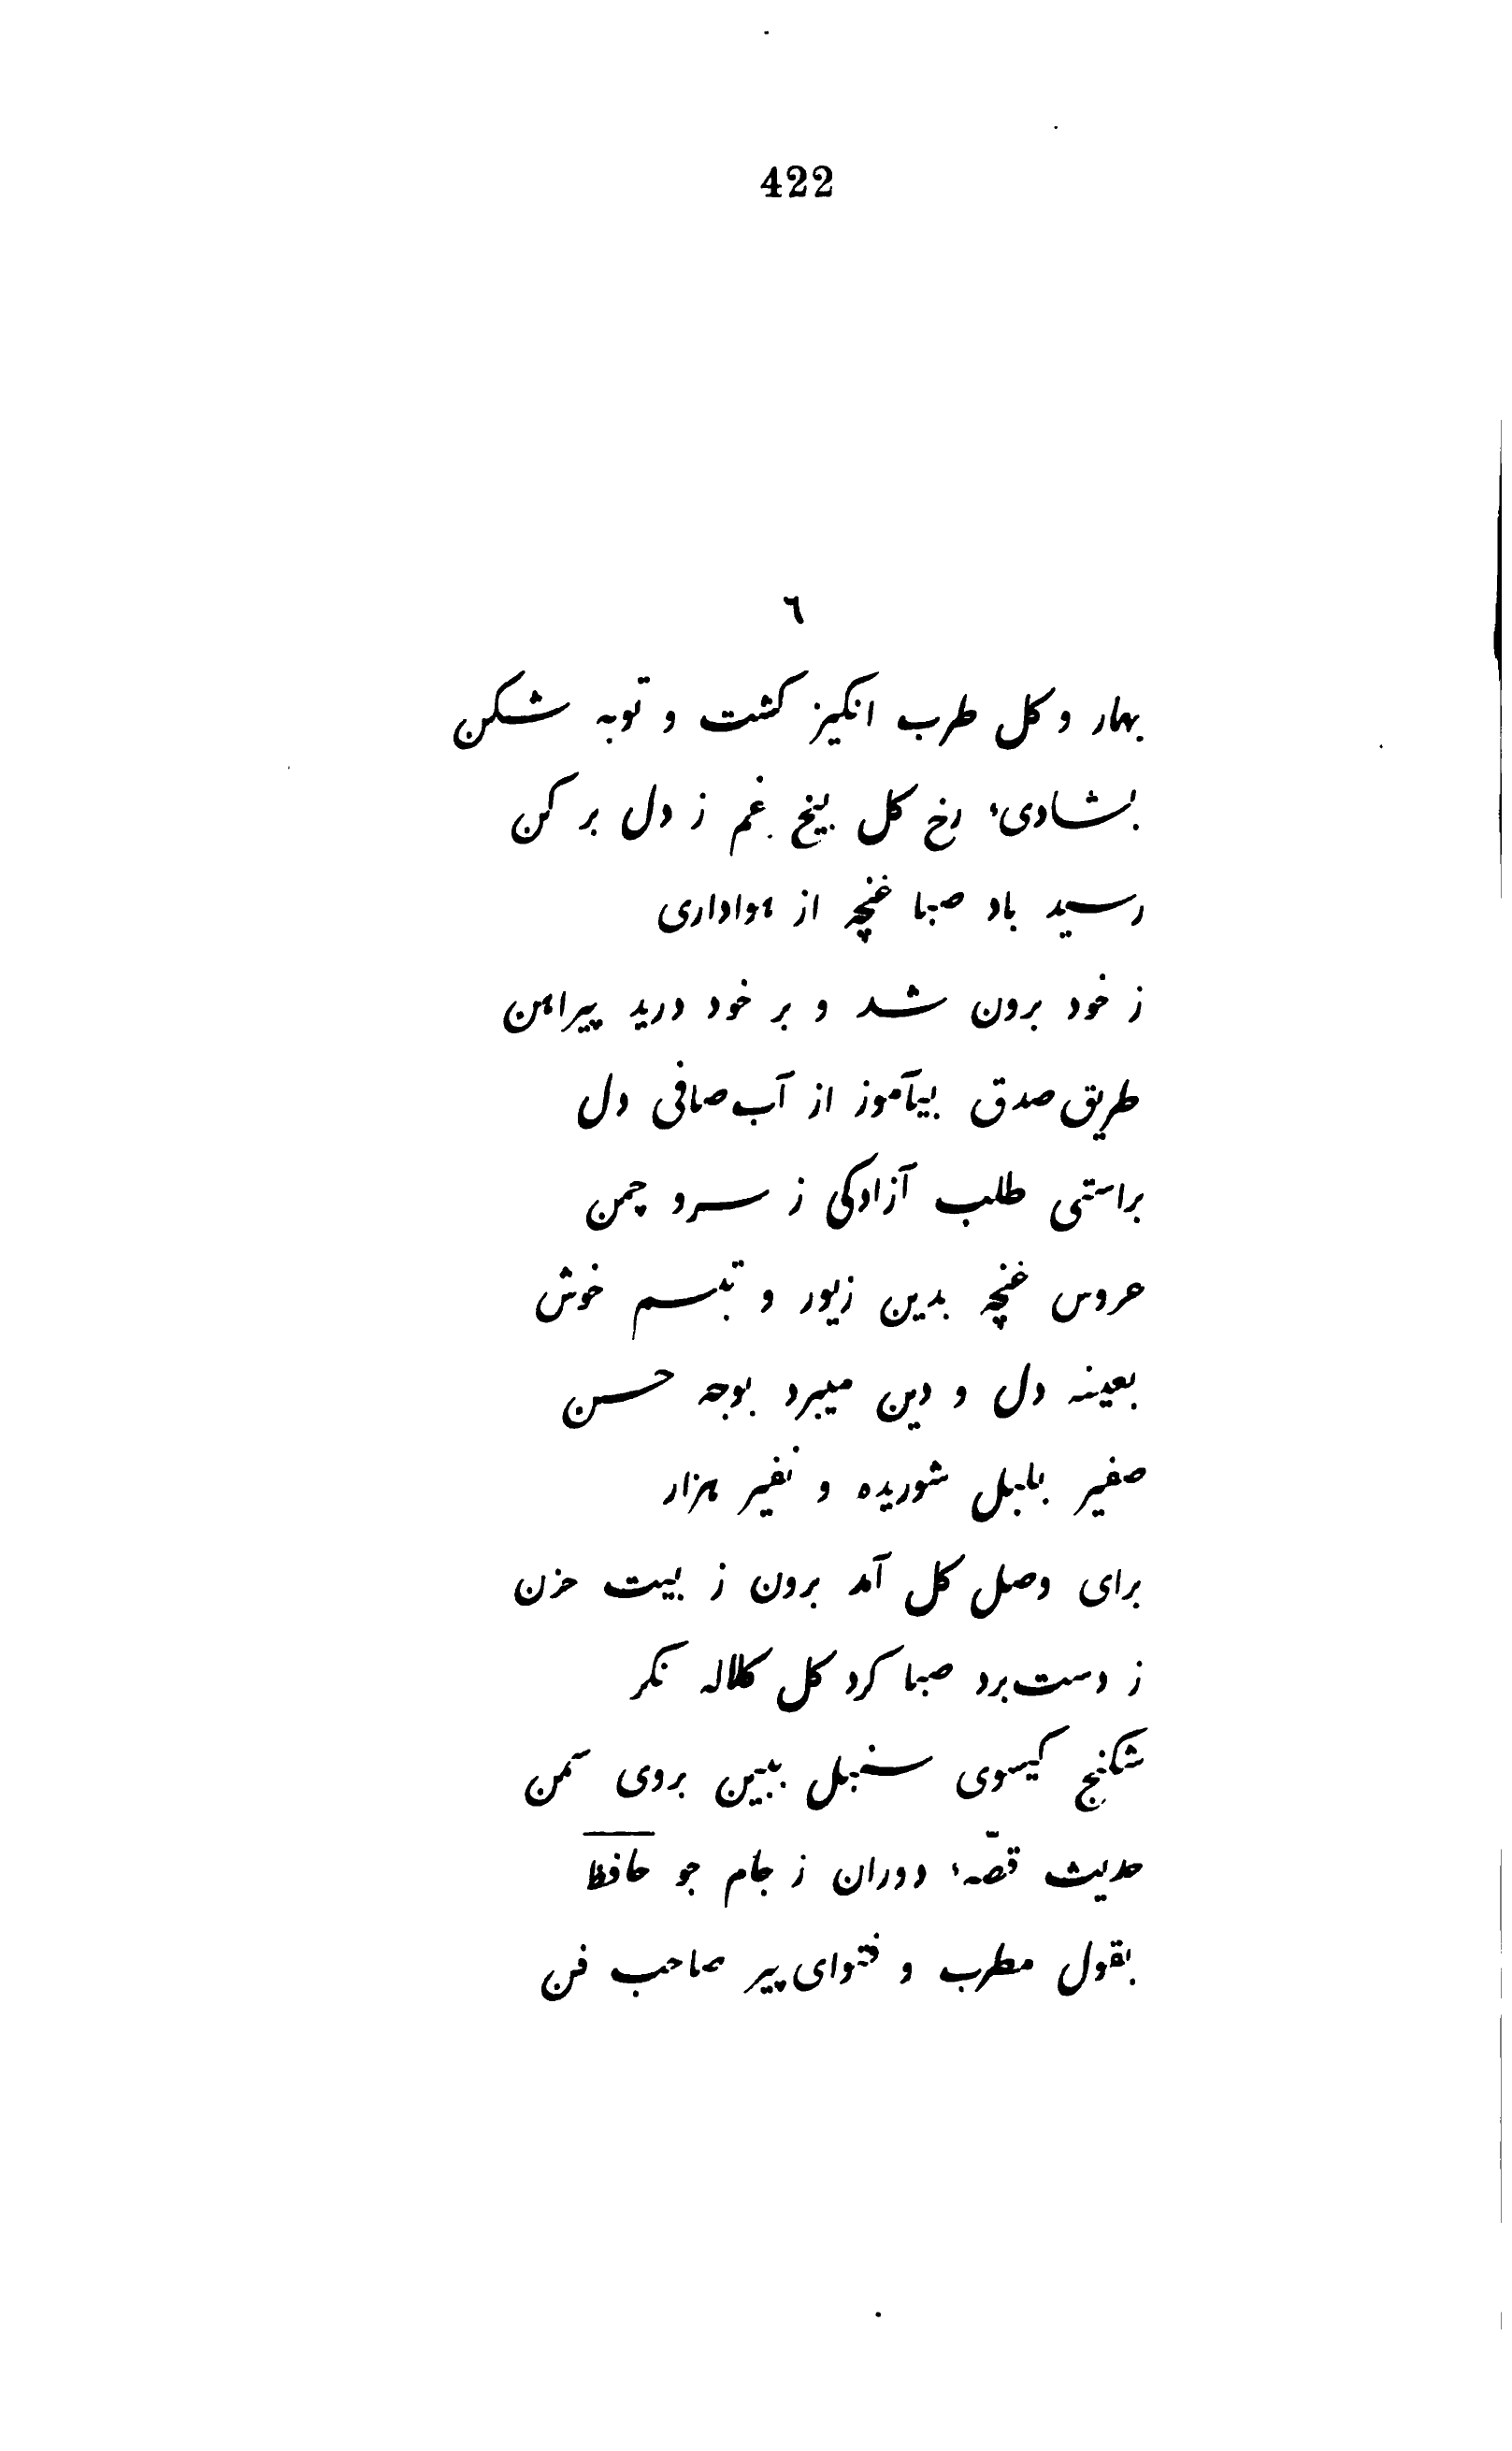 422
٦
بهار و کل طرب انکیز کشت و توبه شکن
بشادیٔ رخ کل بیخ غم ز دل بر کن
رسید باد صبا غنچه از هواداری
ز خود برون شد و بر خود درید پیراهن
طریق صدق بیآموز از آب صافی دل
براستی طلب آزادکی ز سرو چمن
عروس غنچه بدین زیور و تبسم خوش
بعینه دل و دین میبرد بوجه حسن
صفیر بلبل شوریده و نفیر هزار
برای وصل کل آمد برون ز بیت حزن
ز دست برد صبا کرد کل کلاله نکر
شکنج کیسوی سنبل ببین بروی سمن
حدیث قصّهٔ دوران ز جام جو حافظ
بقول مطرب و فتوای پیر صاحب فن